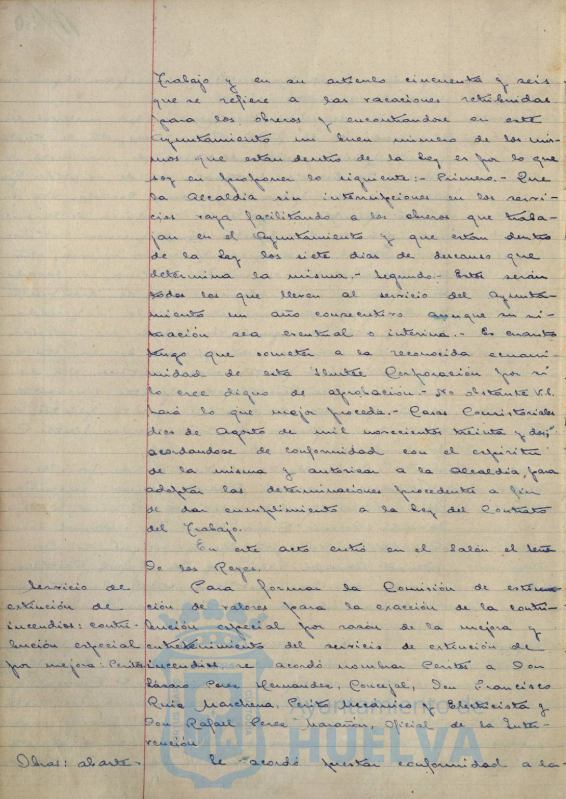 Trabajo y en su artículo cincuenta y seis
que se refiere a las vacaciones retribuidas
para los obreros y encontrandose en este
Ayuntamiento un buen número de los mis-
mos que estan dentro de la Ley es por lo que
soy en proponer lo siguiente:- Primero.- Que
la Alcaldia sin interrupciones en los servi-
cios vaya facilitando a los obreros que traba-
jan en el Ayuntamiento y que estan dentro
de la Ley los siete dias de descanso que
determina la misma.- Segundo.- Estos serán
todos los que lleven al servicio del Ayunta-
miento un año consecutivo aunque su si-
tuación sea eventual o interina.- Es cuanto
tengo que someter a la reconocida ecuani-
midad de esta Iltma Corporación por si
lo cree digno de aprobación.- No obstante V.E.
hará lo que mejor proceda.- Casas Consistoriales
diez de Agosto de mil novecientos treinta y dos;
acordandose de conformidad con el espiritu
de la misma y autorizar a la Alcaldía, para
adoptar las determinaciones procedentes a fin
de dar cumplimiento a la Ley del Contrato
del Trabajo.
En este acto entró en el Salón el Señor
De los Reyes.
Servicio de
extinción de
incendios: contri-
bución especial
por mejora: Peritos
Para formar la Comisión de estima-
ción de valores para la exacción de la contri-
bución especial por razón de la mejora y
entretenimiento del servicio de extinción de
incendios, se acordó nombrar Peritos a Don
Lázaro Perez Hernandez, Concejal, Don Francisco
Ruiz Marchena, Perito Mecánico y Electricista y
Don Rafael Perez Marañón, Oficial de la Inter-
vención
Obras: abaste-
Se acordó prestar conformidad a la
Ayuntamiento de
HUELVA